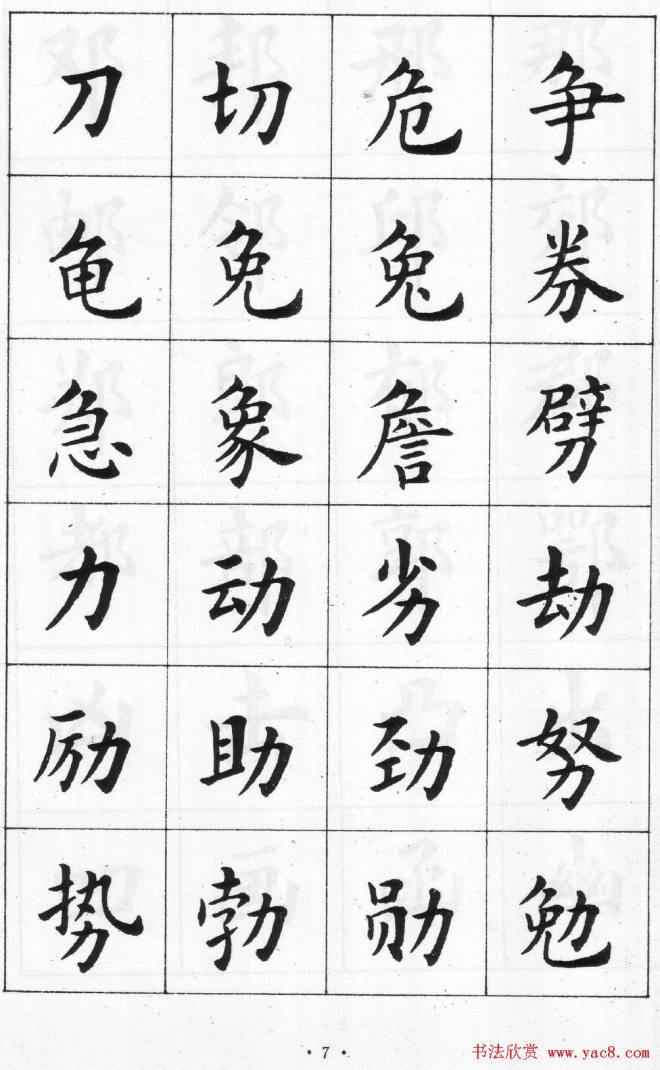 刀 切 危 争
龟 免 兔 券
急 象 詹 劈
力 动 劣 劫
励 助 劲 努
势 勃 勋 勉
·7·
书法欣赏 www.yac8.com